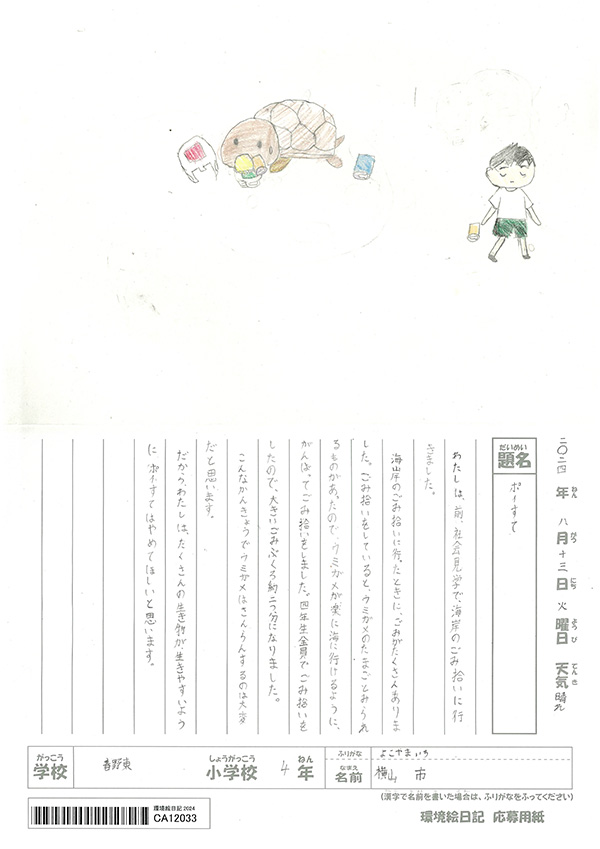 二〇二四年 八月十三日 火曜日 天気 晴れ
ねん がつ にち よう び てんき
だいめい
題名 ポイすて
わたしは、前、社会見学で、海岸のごみ拾いに行
きました。
海岸のごみ拾いに行ったときに、ごみがたくさんありま
した。ごみ拾いをしていると、ウミガメのたまごとみられ
るものがあったので、ウミガメが楽に海に行けるように、
がんばってごみ拾いをしました。四年生全員でごみ拾いを
したので、大きいごみぶくろ約二つ分になりました。
こんなかんきょうでウミガメはさんらんするのは大変
だと思います。
だから、わたしは、たくさんの生き物が、生きやすいよう
に ポイすてはやめてほしいと思います。
がっこう しょうがっこう ねん ふりがな よこやま いち
学校 春野東 小学校 4年 なまえ 名前 横山 市
(漢字で名前を書いた場合は、ふりがなをふってください)
環境絵日記 2024
CA12033
環境絵日記 応募用紙